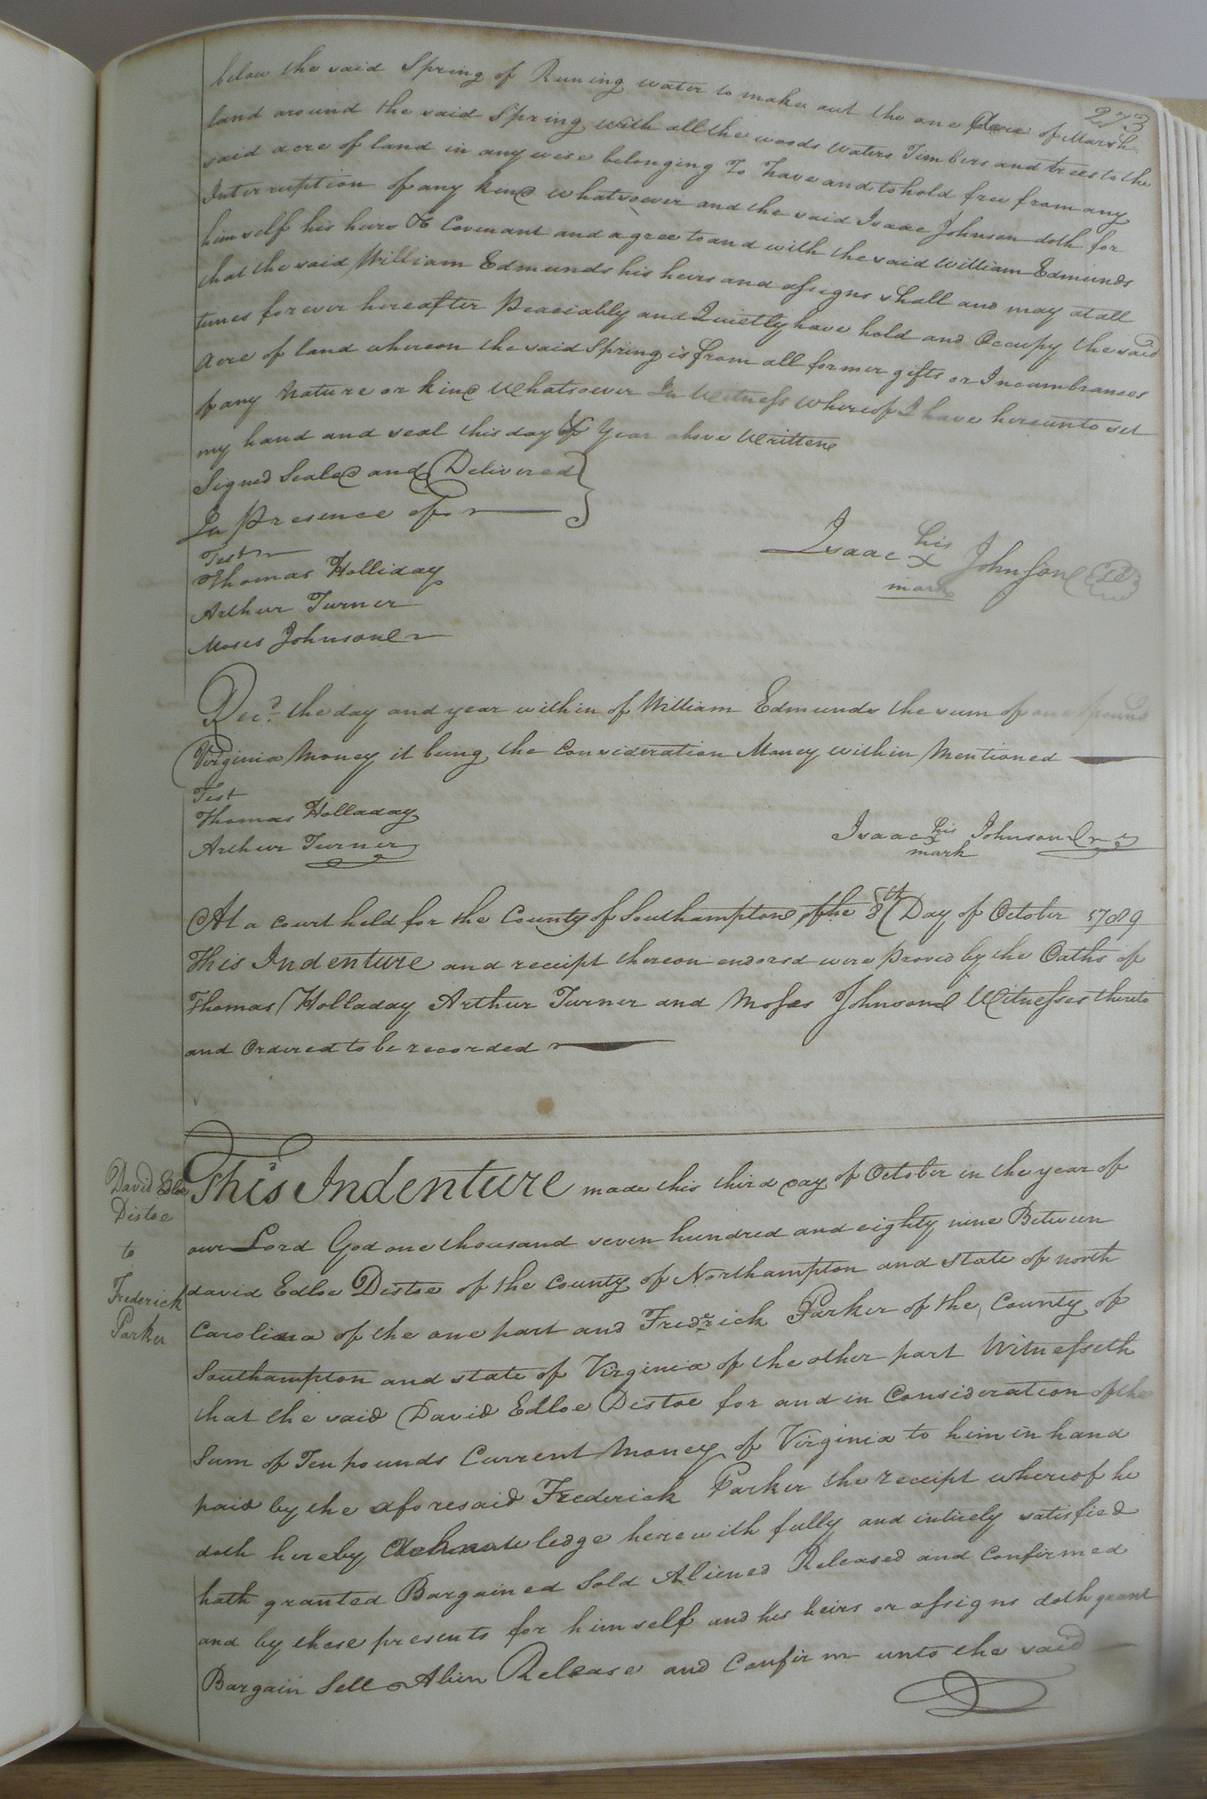 273
below the said Spring of Runing water to make out the one Acre of Marsh
land around the said Spring with all the woods waters Timbers and trees to the
said acre of land in any wise belonging To have and to hold free from any
Interruption of any kind whatsoever and the said Isaac Johnson doth for
himself his heirs &c Covenant and agree to and with the said William Edmunds
that the said William Edmunds his heirs and assigns shall and may at all
times forever hereafter Peaciably and Quietly have hold and Occupy the said
Acre of land whereon the said Spring is from all former gifts or Incumbrances
of any Nature or kind Whatsoever In Witness Whereof I have hereunto set
my hand and seal this day & Year above Written
Signed Sealed and Delivered
In Presence of
Test
Thomas Holliday
Arthur Turner
Moses Johnson
Isaac his x mark Johnson
Rec.d the day and year within of William Edmunds the sum of one pound
Virginia Money it being the Consideration Money within Mentioned
Test
Thomas Holladay
Arthur Turner
Isaac his x mark Johnson
At a court held for the County of Southampton the 8th Day of October 1789
This Indenture and receipt thereon endorsd were proved by the Oaths of
Thomas Holladay Arthur Turner and Moses Johnson Witnesses thereto
and Ordered to be recorded
David Edloe
Distoe
to
Frederick
Parker
This Indenture made this third day of October in the year of
our Lord God one thousand seven hundred and eighty nine Between
david Edloe Distoe of the County of Northampton and state of north
Carolina of the one part and Fredrick Parker of the County of
Southampton and state of Virginia of the other part Witnesseth
that the said David Edloe Distoe for and in Consideration of the
Sum of Ten pounds Current Money of Virginia to him in hand
paid by the aforesaid Frederick Parker the receipt whereof he
doth hereby Acknowledge herewith fully and intirely satisfied
hath granted Bargained Sold Aliened Released and Confirmed
and by these presents for himself and his heirs or assigns doth grant
Bargain Sell Alien Release and Confirm unto the said